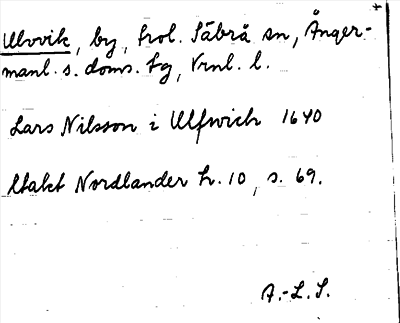 Ulvvik, by, trol. Säbrå sn, Ånger-
manl. s. doms. tg, Vrnl. l.
Lars Nilsson i Ulfwich 1640
Utakt Nordlander h. 10, s. 69.
A.-L. S.